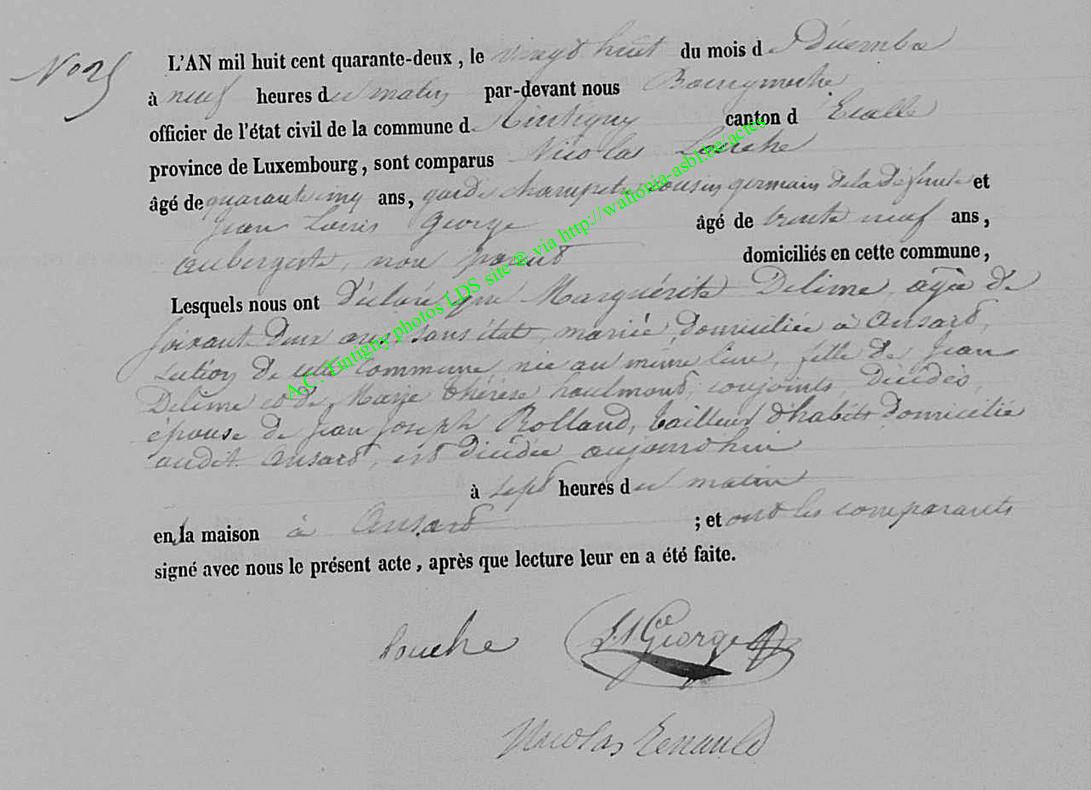 No 25
L'AN mil huit cent quarante-deux, le vingt huit du mois d décembre
à neuf heures du matin par-devant nous Bourgmestre
officier de l'état civil de la commune d Tintigny canton d' Etalle
province de Luxembourg, sont comparus Nicolas Louche
âgé de quarante cinq ans, garde champetre cousin germain de la défunte et
Jean Louis George âgé de trente neuf ans,
aubergiste, non parent domiciliés en cette commune,
Lesquels nous ont déclaré que Marguérite Delime agée de
soixant deux ans, sans état, mariée, domiciliée à Ansart,
section de cette Commune, née au même lieu, fille de Jean
Delime et de Marie thérèse conjoints décédés,
épouse de Jean Joseph Rolland, tailleur d'habits domicilié
audit Ansart, est décédée aujourd'hui
à sept heures du matin
en la maison à Ansart ; et ont les comparants
signé avec nous le présent acte, après que lecture leur en a été faite.
Louche George
Nicolas Renauld
A.C. Tintigny photos LDS site ® via http://wallonia-asbl.be/actes